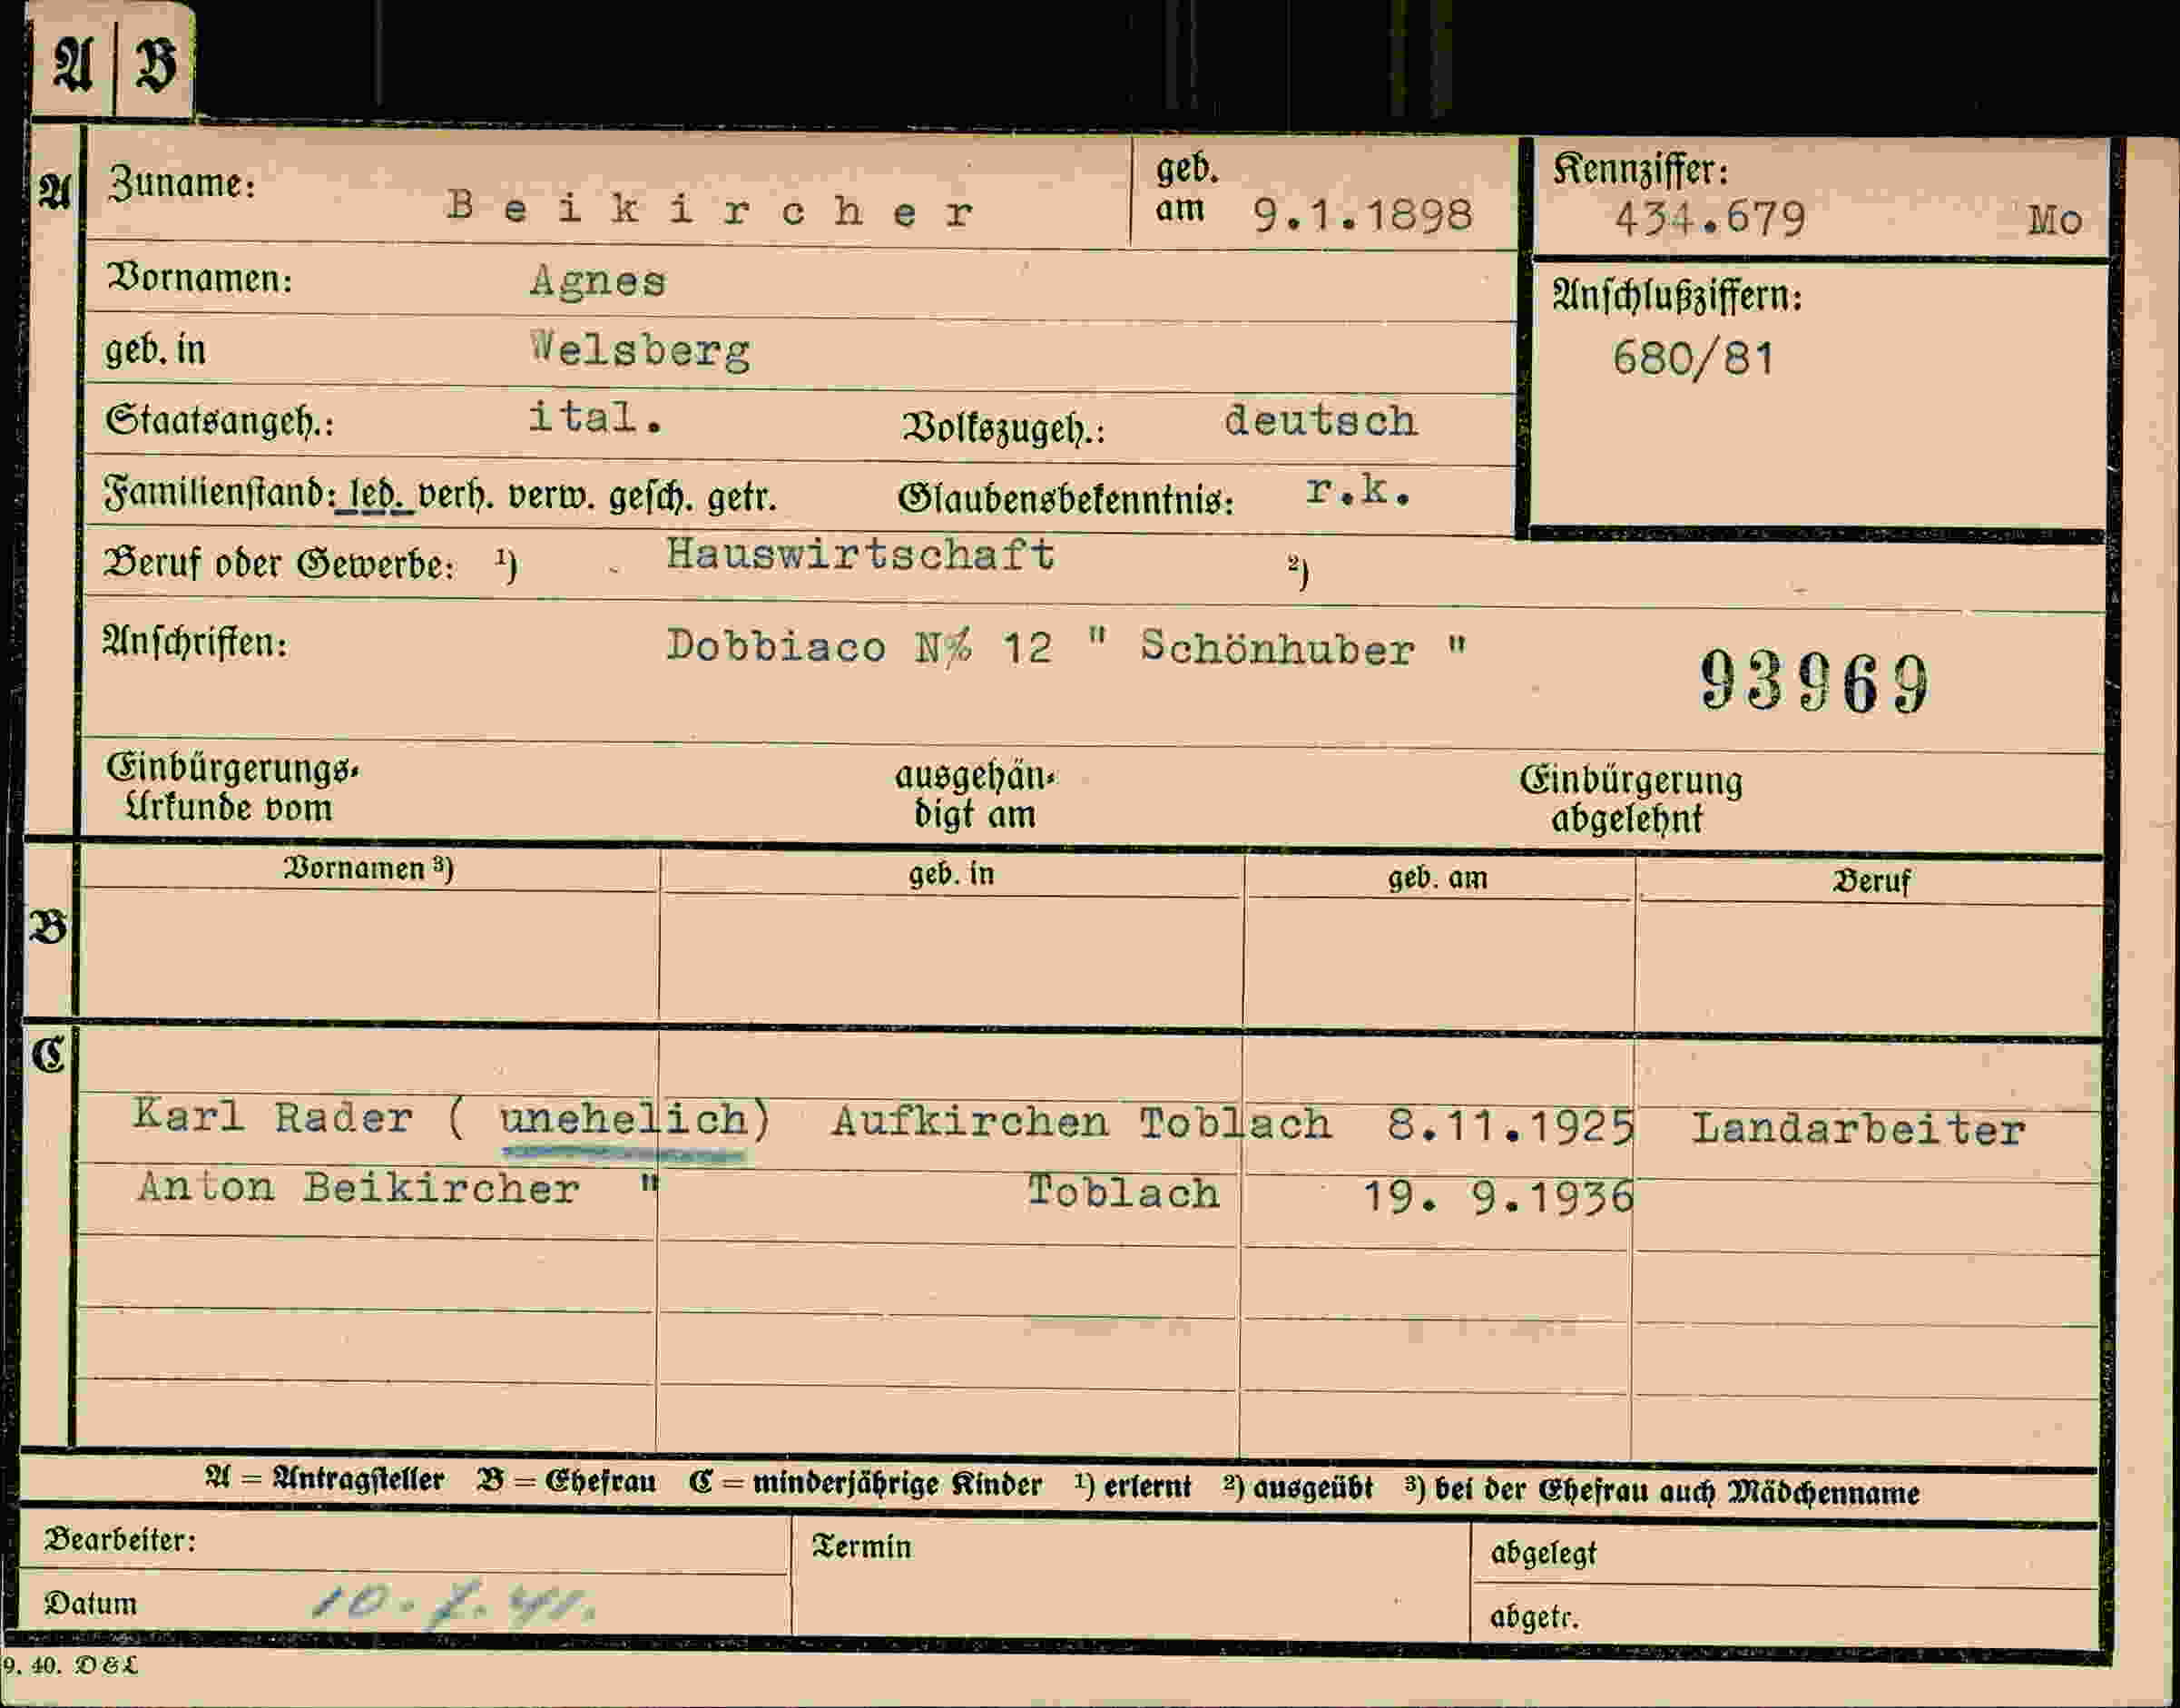 A B
A Zuname: Beikircher geb. am 9.1.1898 Kennziffer: 434.679 Mo
Vornamen: Agnes Anschlußziffern:
geb. in Welsberg 680/81
Staatsangeh.: ital. Volkszugeh.: deutsch
Familienstand: led. verh. verw. gesch. getr. Glaubensbekenntnis: r.k.
Beruf oder Gewerbe: 1) Hauswirtschaft 2)
Anschriften: Dobbiaco N% 12 " Schönhuber "
93969
Einbürgerungs- ausgehän- Einbürgerung
Urkunde vom digt am abgelehnt
Vornamen 3) geb. in geb. am Beruf
B
C
Karl Rader ( unehelich) Aufkirchen Toblach 8.11.1925 Landarbeiter
Anton Beikircher " Toblach 19. 9.1936
A = Antragsteller B = Ehefrau C = minderjährige Kinder 1) erlernt 2) ausgeübt 3) bei der Ehefrau auch Mädchenname
Bearbeiter: Termin abgelegt
Datum 10.7.41. abgetr.
9. 40. D & L